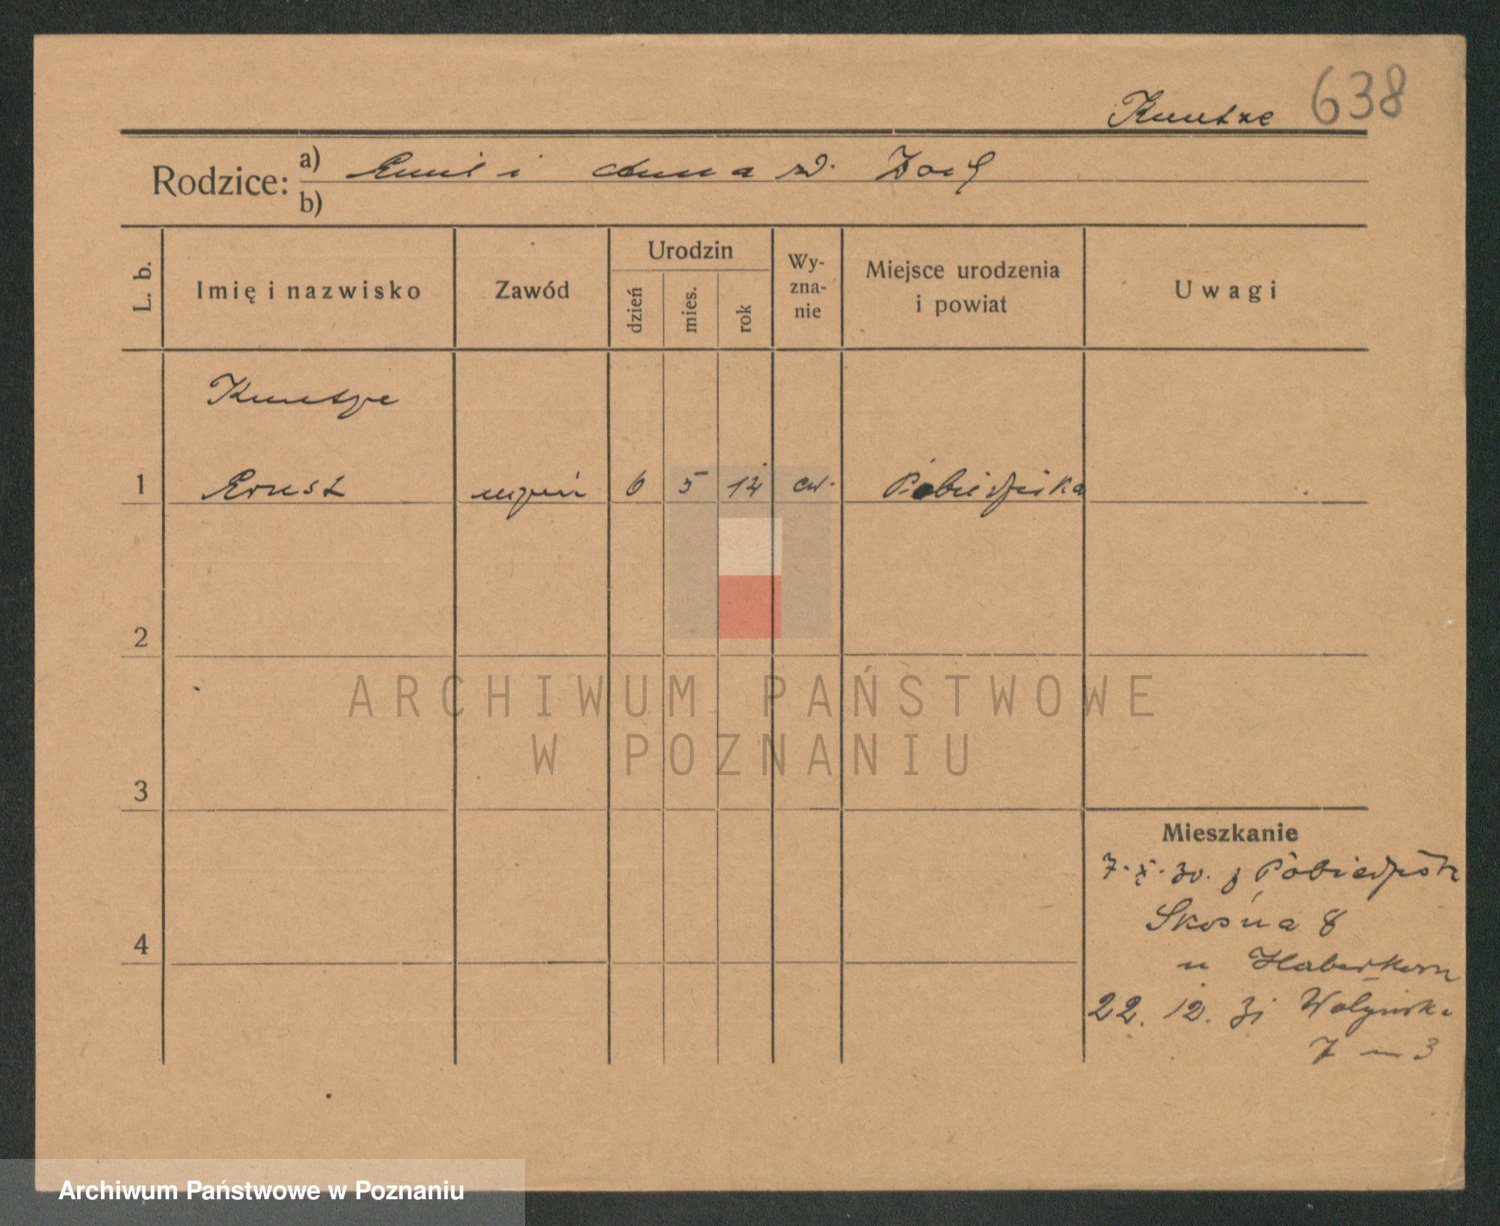 638
Kuntze
Rodzice: a) Emil i Anna z d.
b)
L. b.
Imię i nazwisko
Zawód
Urodzin
dzień
mies.
rok
Wy-
zna-
nie
Miejsce urodzenia
i powiat
Uwagi
Kuntze
1 Ernst uczeń 6 5 14 ew. Pobiedziska
2
3
4
Mieszkanie
7. X. 30. z Pobiedzisk
Skośna 8
u Haberkorn
22. 12. 31 Wołyńska
7 m 3
ARCHIWUM PAŃSTWOWE
W POZNANIU
Archiwum Państwowe w Poznaniu